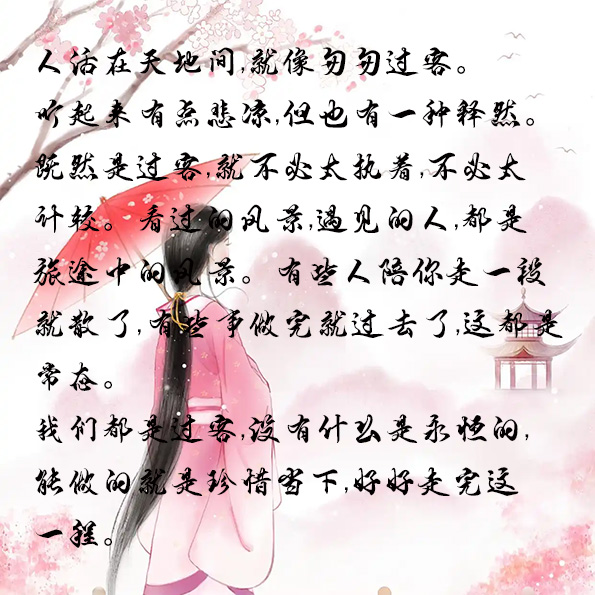 人活在天地间,就像匆匆过客。
听起来有点悲凉,但也有一种释然。
既然是过客,就不必太执着,不必太
计较。看过的风景,遇见的人,都是
旅途中的风景。有些人陪你走一段
就散了,有些事做完就过去了,这都是
常态。
我们都是过客,没有什么是永恒的,
能做的就是珍惜当下,好好走完这
一程。